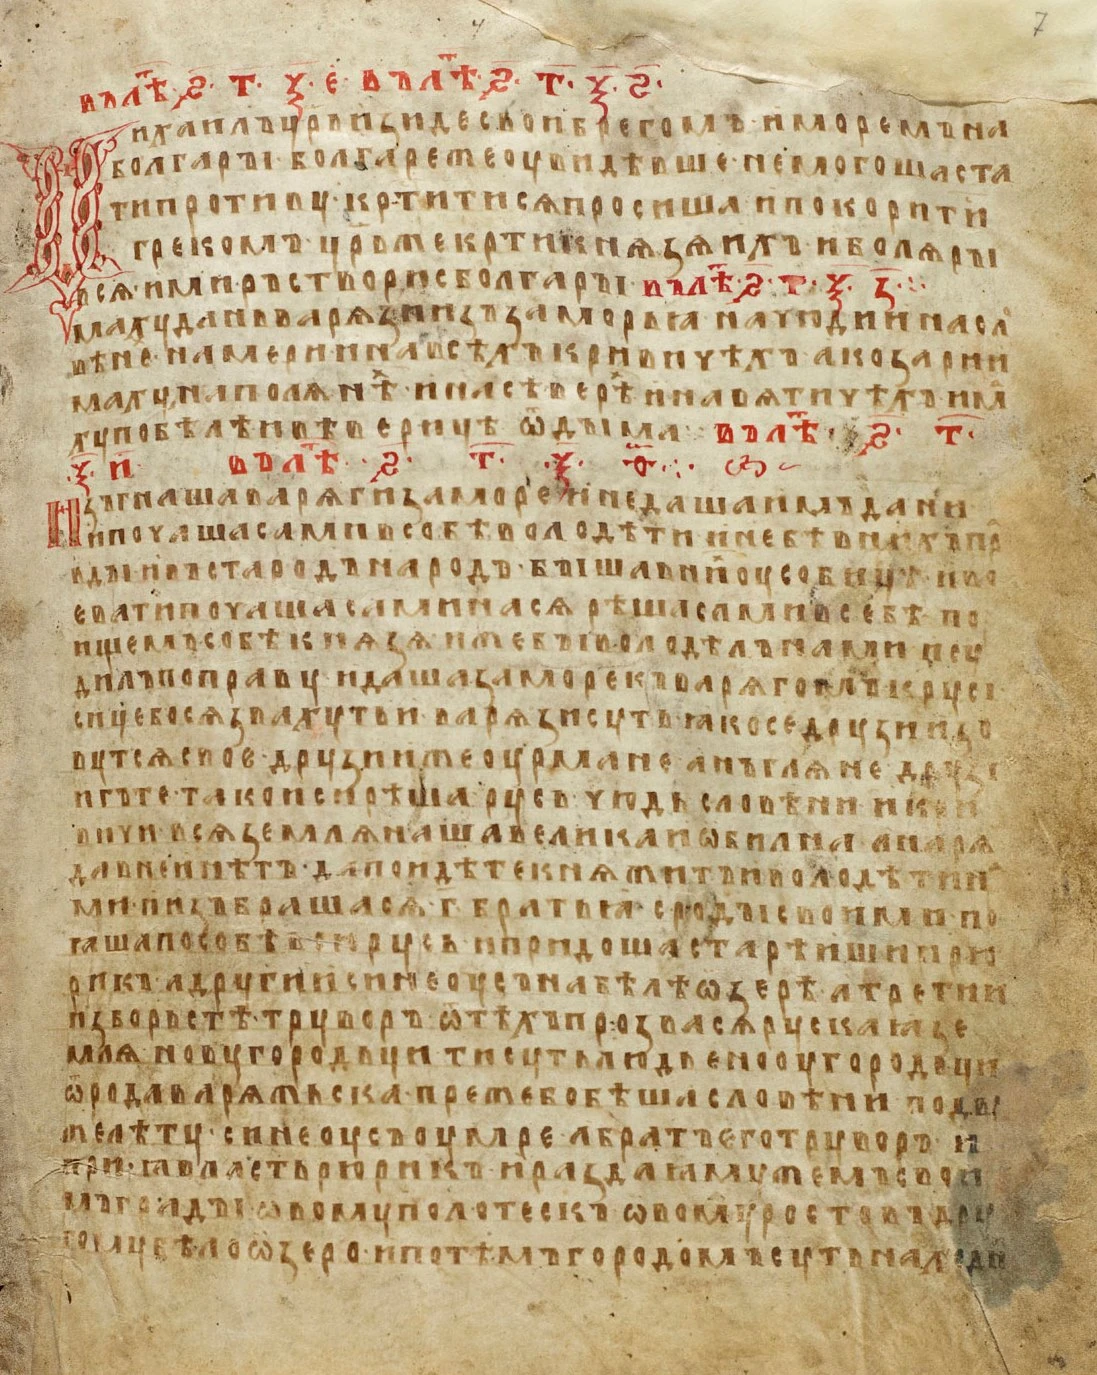 7
въ лѣт ҂ѕ҃ т҃ ѯ҃ е҃ въ лѣт ҂ѕ҃ т҃ ѯ҃ ѕ҃
Михаилъ цр҃ь изиде с вои брегомъ и моремъ на
болгары болгаре же оувидѣвше не могоша ста
ти противу крⷭтитисѧ просиша и покоритисѧ
грекомъ цр҃ь же крⷭти кнѧзѧ ихъ и болѧры
всѧ и миръ створи с болгары въ лѣт ҂ѕ҃ т҃ ѯ҃ з҃
имаху дань варѧзи изъ заморьꙗ на чюди и на сло
вѣне на мери и на всѣхъ кривичѣхъ а козари и
маху на полѧнѣх и на сѣверѣх и на вѧтичѣхъ има
ху по бѣлѣ и вѣверицѣ ѿ дыма въ лѣт ҂ѕ҃ т҃
ѯ҃ и҃ въ лѣт ҂ѕ҃ т҃ ѯ҃ ѳ҃
Изъгнаша варѧги за море и не даша имъ дани
и почаша сами в собѣ володѣти и не бѣ в нихъ пра
вды и въста родъ на родъ быша в них оусобицѣ и во
евати почаша сами на сѧ рѣша сами в себѣ по
ищемъ собѣ кнѧзѧ иже бы володѣлъ нами и су
дилъ по праву идаша за море къ варѧгомъ к руси
сице бо сѧ звахуть и варѧзи суть ꙗко се друзии зо
вутсѧ свое друзии же оурмане анъглѧне друзи
и гъте тако и си рѣша русь чюдь словѣни и кри
вичи всѧ землѧ наша велика и ѡбилна а нарѧ
да в неи нѣтъ да поидѣте кнѧжитъ и володѣти на
ми и изъбрашасѧ г҃ братьꙗ с роды своими по
ꙗша по собѣ всю русь и придоша старѣишии рю
рикъ а другии синеоусъ на бѣлѣѡзерѣ а третии
изборьстѣ труворъ ѿ тѣхъ прозвасѧ рускаꙗ зе
млѧ новугородьци ти суть людье ноугородьци
ѿ рода варѧжьска преже бо бѣша словѣни по дъву
же лѣту синеоусъ оумре а братъ его труворъ и
приꙗ власть рюрикъ и раздаꙗ мужемъ свои
мъ грады ѡвому полотескъ ѡвому ростовъ дру
гому бѣлоѡзеро и по тѣмъ городомъ суть находни